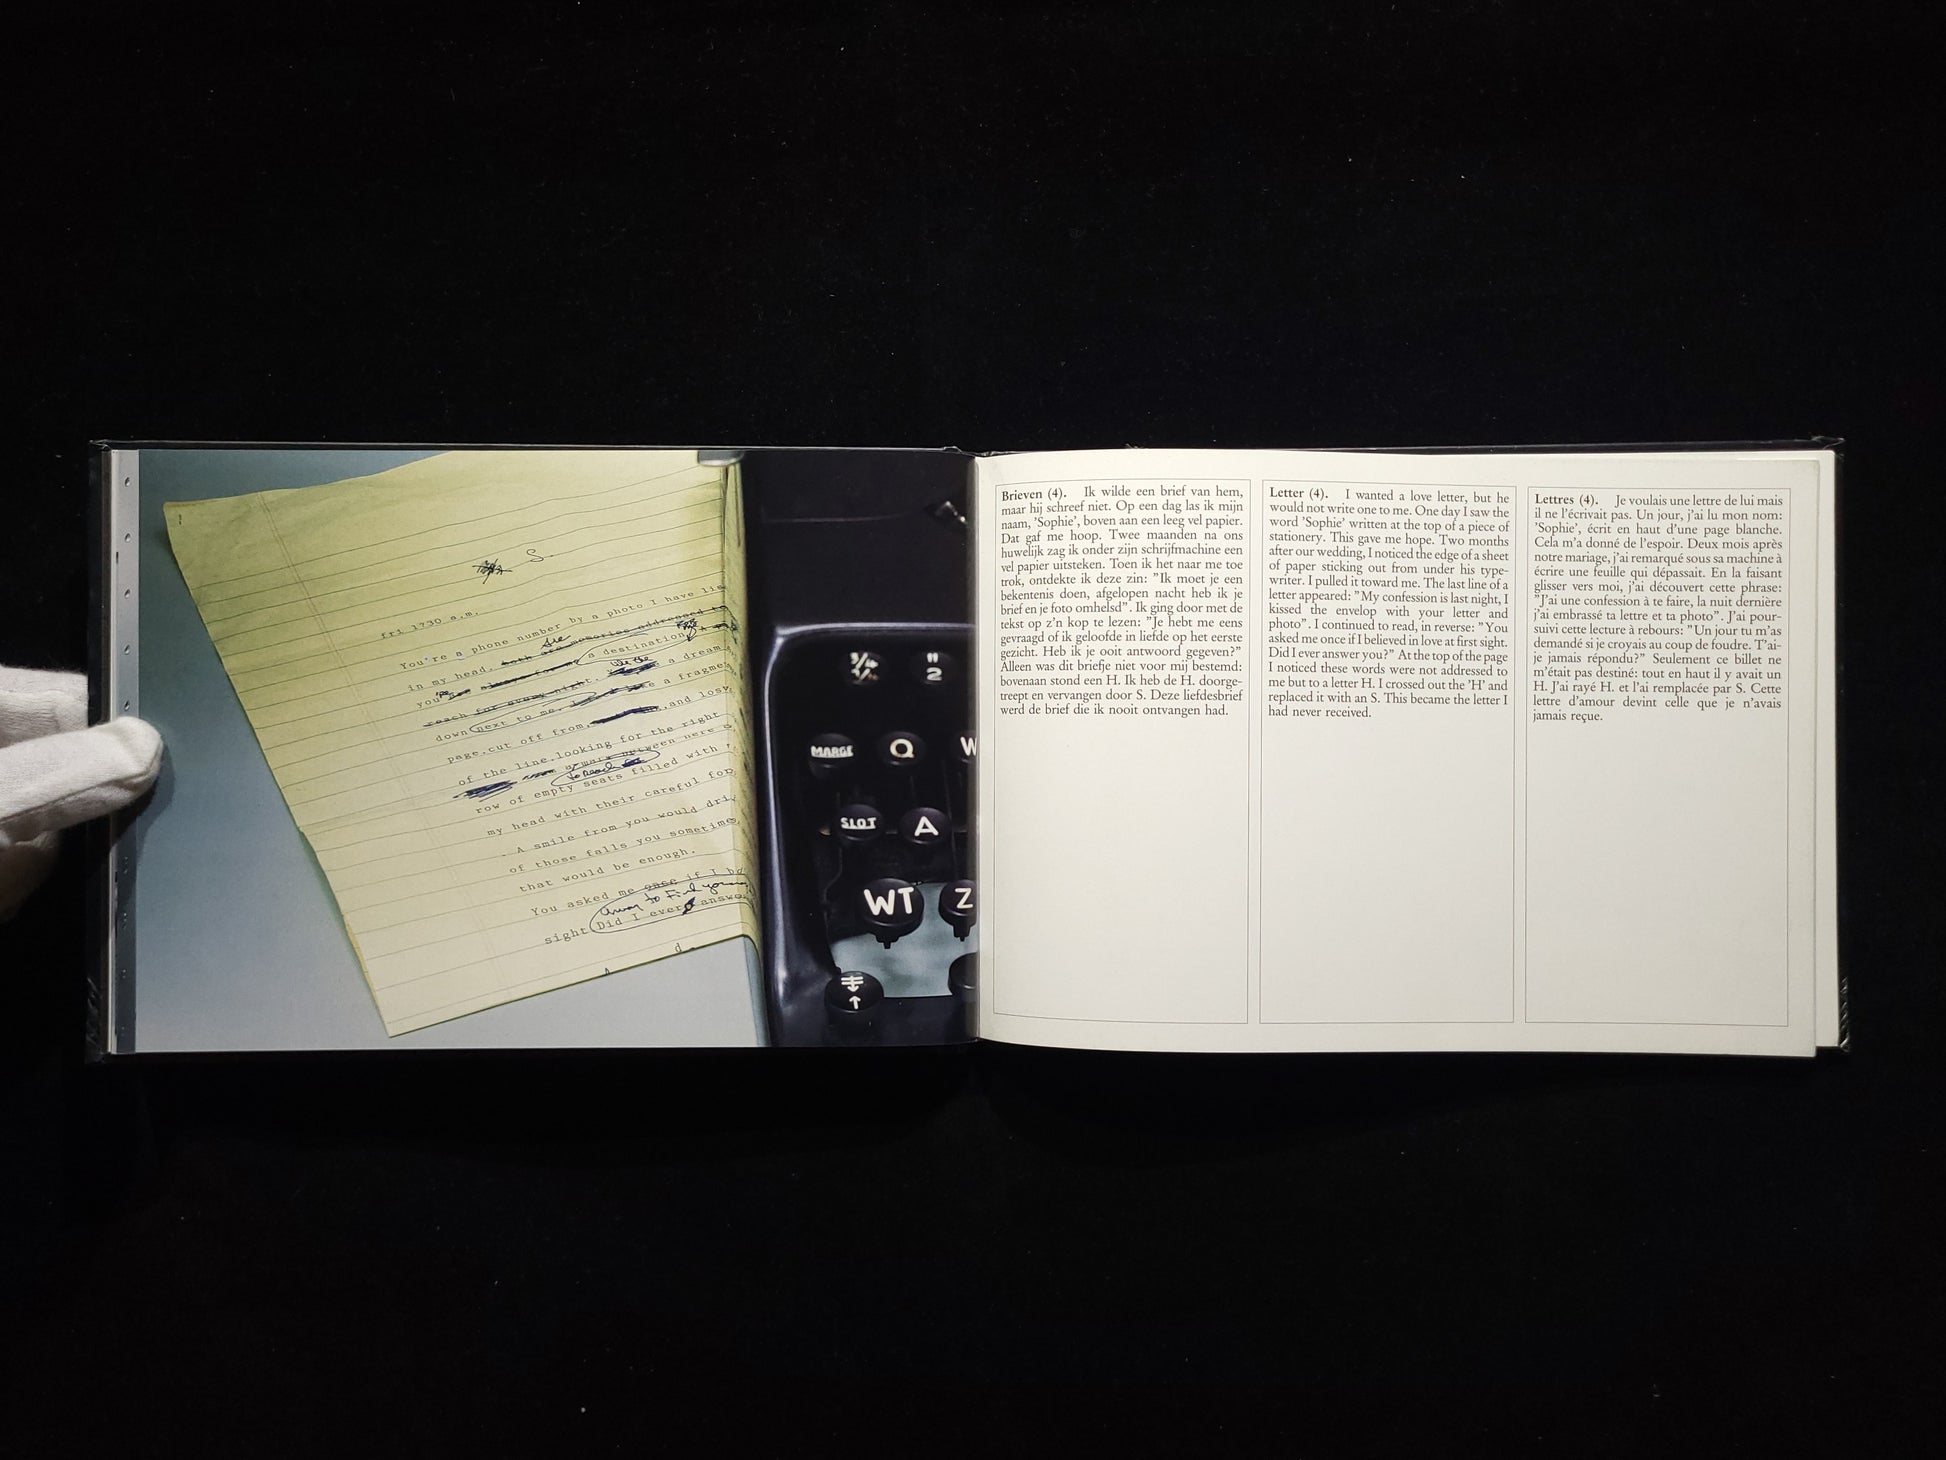 S.
fri 1730 a.m.
You're a phone number by a photo I have
in my head.
a destination
you a dream
reach for every night. a fragme
down next to me.
page, cut off from and lost
of the line, looking for the right
to reach
row of empty seats filled with
my head with their careful
A smile from you would
of those falls you sometime
that would be enough.
You asked me once if I be
sight Did I ever answe
3/4
"
2
MARGE
Q
W
SLOT
A
WT
Z
Brieven (4). Ik wilde een brief van hem,
maar hij schreef niet. Op een dag las ik mijn
naam, 'Sophie', boven aan een leeg vel papier.
Dat gaf me hoop. Twee maanden na ons
huwelijk zag ik onder zijn schrijfmachine een
vel papier uitsteken. Toen ik het naar me toe
trok, ontdekte ik deze zin: "Ik moet je een
bekentenis doen, afgelopen nacht heb ik je
brief en je foto omhelsd". Ik ging door met de
tekst op z'n kop te lezen: "Je hebt me eens
gevraagd of ik geloofde in liefde op het eerste
gezicht. Heb ik je ooit antwoord gegeven?"
Alleen was dit briefje niet voor mij bestemd:
bovenaan stond een H. Ik heb de H. doorge-
treept en vervangen door S. Deze liefdesbrief
werd de brief die ik nooit ontvangen had.
Letter (4). I wanted a love letter, but he
would not write one to me. One day I saw the
word 'Sophie' written at the top of a piece of
stationery. This gave me hope. Two months
after our wedding, I noticed the edge of a sheet
of paper sticking out from under his type-
writer. I pulled it toward me. The last line of a
letter appeared: "My confession is last night, I
kissed the envelop with your letter and
photo". I continued to read, in reverse: "You
asked me once if I believed in love at first sight.
Did I ever answer you?" At the top of the page
I noticed these words were not addressed to
me but to a letter H. I crossed out the 'H' and
replaced it with an S. This became the letter I
had never received.
Lettres (4). Je voulais une lettre de lui mais
il ne l'écrivait pas. Un jour, j'ai lu mon nom:
'Sophie', écrit en haut d'une page blanche.
Cela m'a donné de l'espoir. Deux mois après
notre mariage, j'ai remarqué sous sa machine à
écrire une feuille qui dépassait. En la faisant
glisser vers moi, j'ai découvert cette phrase:
"J'ai une confession à te faire, la nuit dernière
j'ai embrassé ta lettre et ta photo". J'ai pour-
suivi cette lecture à rebours: "Un jour tu m'as
demandé si je croyais au coup de foudre. T'ai-
je jamais répondu?" Seulement ce billet ne
m'était pas destiné: tout en haut il y avait un
H. J'ai rayé H. et l'ai remplacée par S. Cette
lettre d'amour devint celle que je n'avais
jamais reçue.